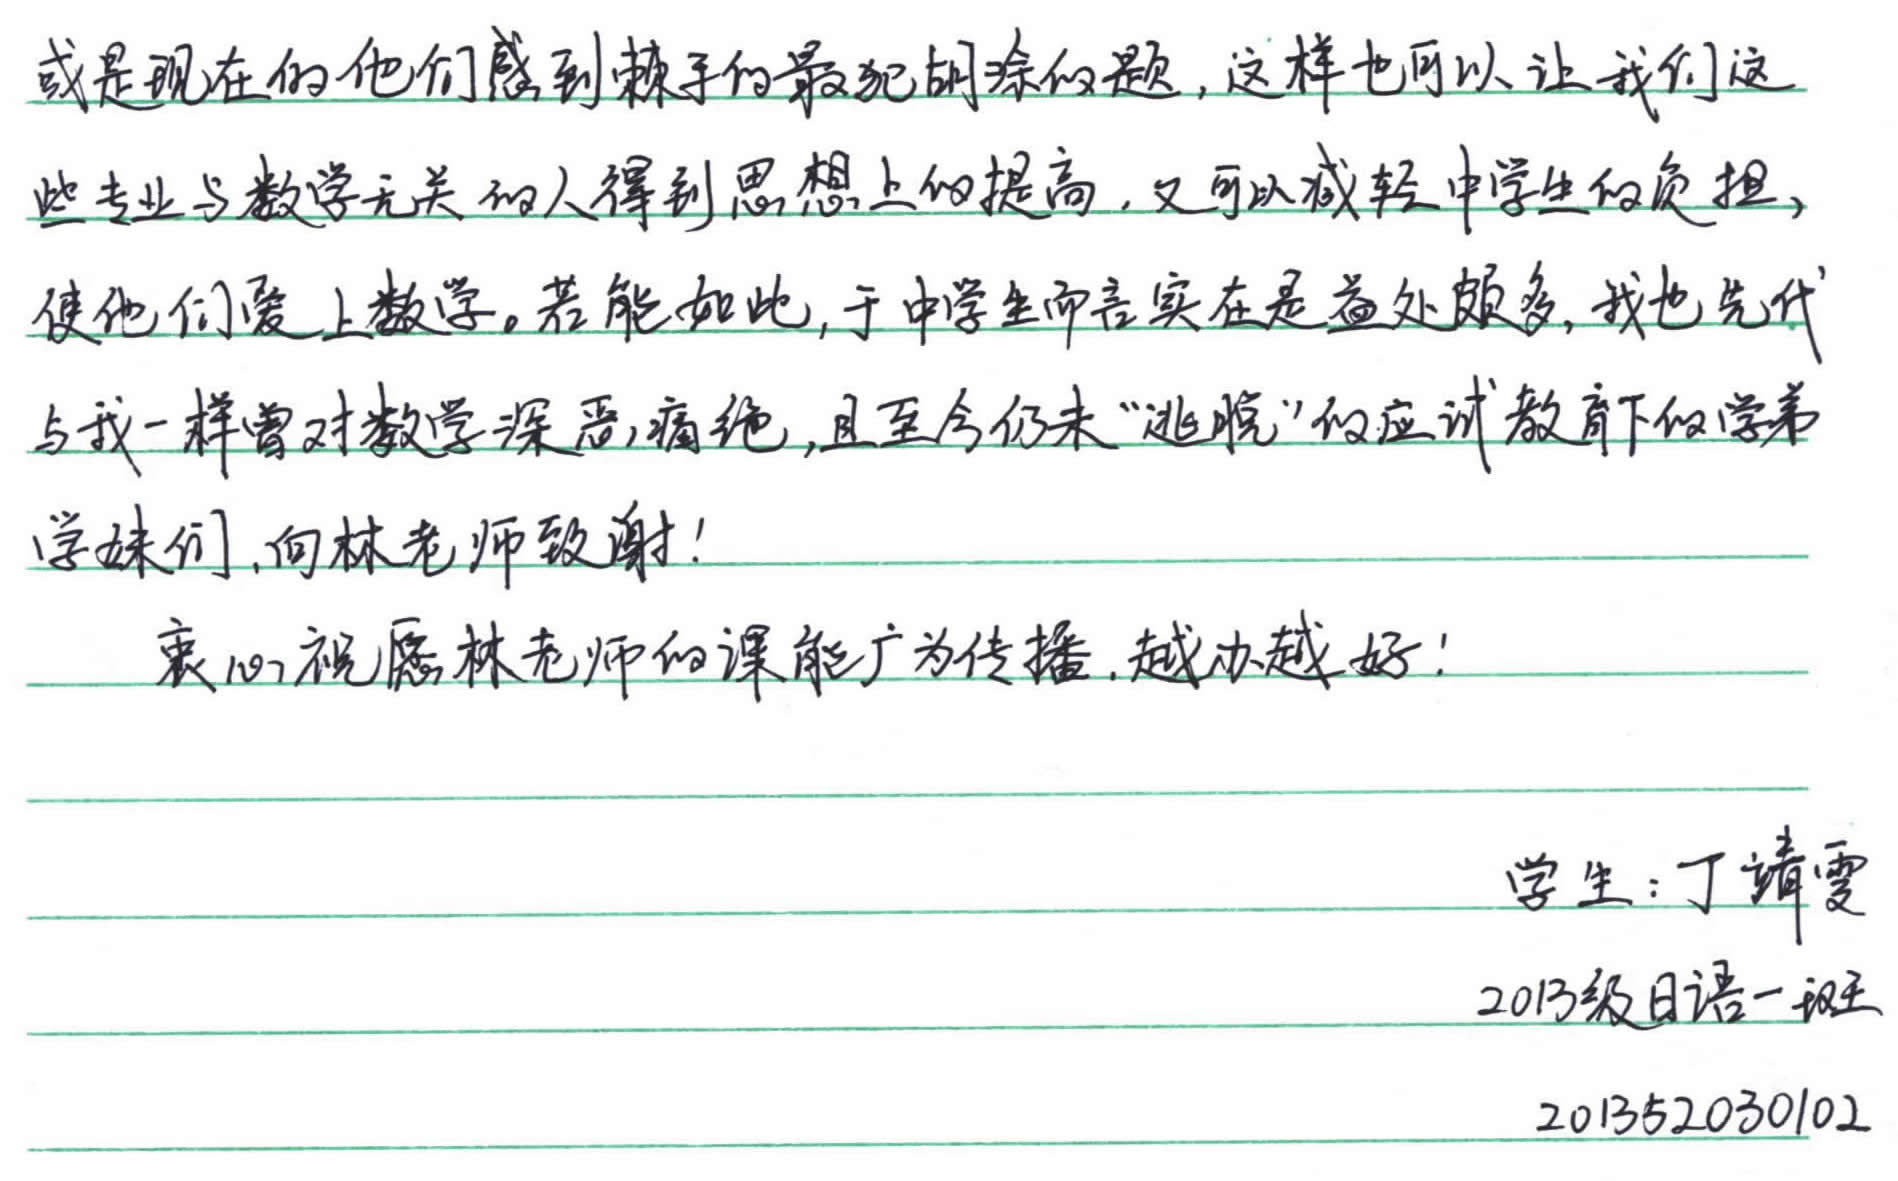 或是现在的他们感到棘手的最犯胡涂的题，这样也可以让我们这
些专业与数学无关的人得到思想上的提高，又可以减轻中学生的负担，
使他们爱上数学。若能如此，于中学生而言实在是益处颇多，我也先代
与我一样曾对数学深恶痛绝，且至今仍未“逃脱”的应试教育下的学弟
学妹们，向林老师致谢！
衷心祝愿林老师的课能广为传播，越办越好！
学生：丁靖雯
2013级日语一班
201352030102